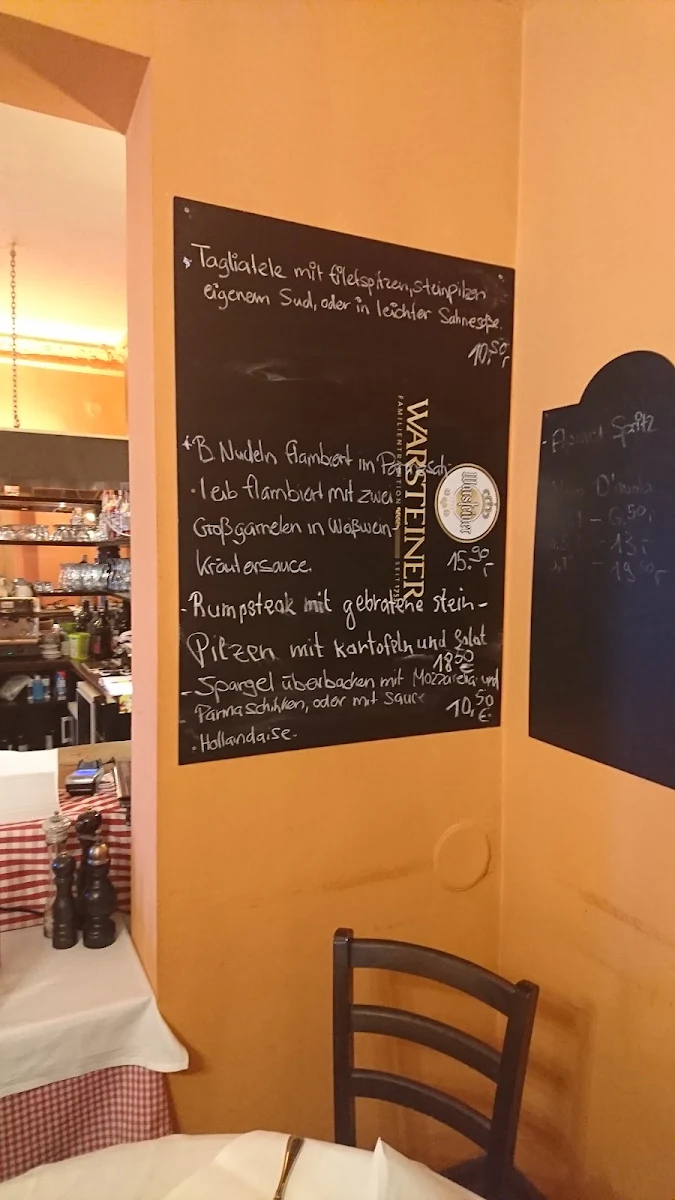 * Tagliatele mit filetspitzen, steinpilzen
eigenem Sud, oder in leichter Sahnesoße.
10,50,-
* B. Nudeln flambiert im Parmesah-
. leib flambiert mit zwei
Großgarnelen in Weßwein-
Kräutersauce.
15.90,-
- Rumpsteak mit gebratene Stein-
Pilzen mit kartofeln und Salat
18,50 €
- Spargel überbacken mit Mozzarella und
Parmaschihken, oder mit Sauce
10,50 €.
. Hollandaise.
WARSTEINER
FAMILIENTRADITION
SEIT 1753
Warsteiner
- Spritz
- 6,50,-
- 13,-
- 19,50,-